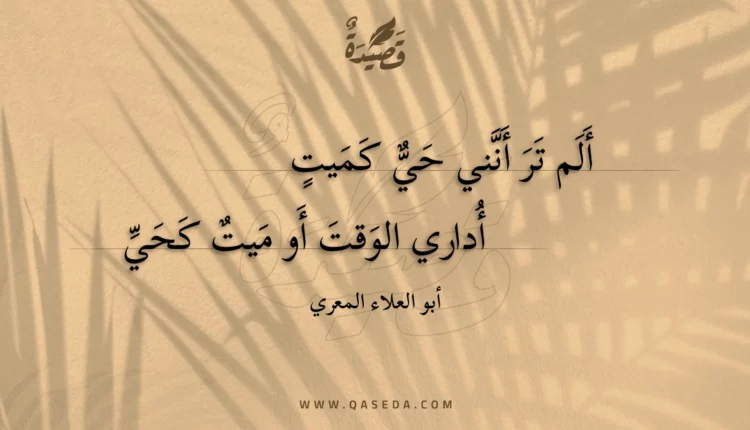 قَصِيْدَةٌ
أَلَم تَرَ أَنَّني حَيٌّ كَمَيتٍ
أُداري الوَقتَ أَو مَيتٌ كَحَيِّ
أبو العلاء المعري
WWW.QASEDA.COM